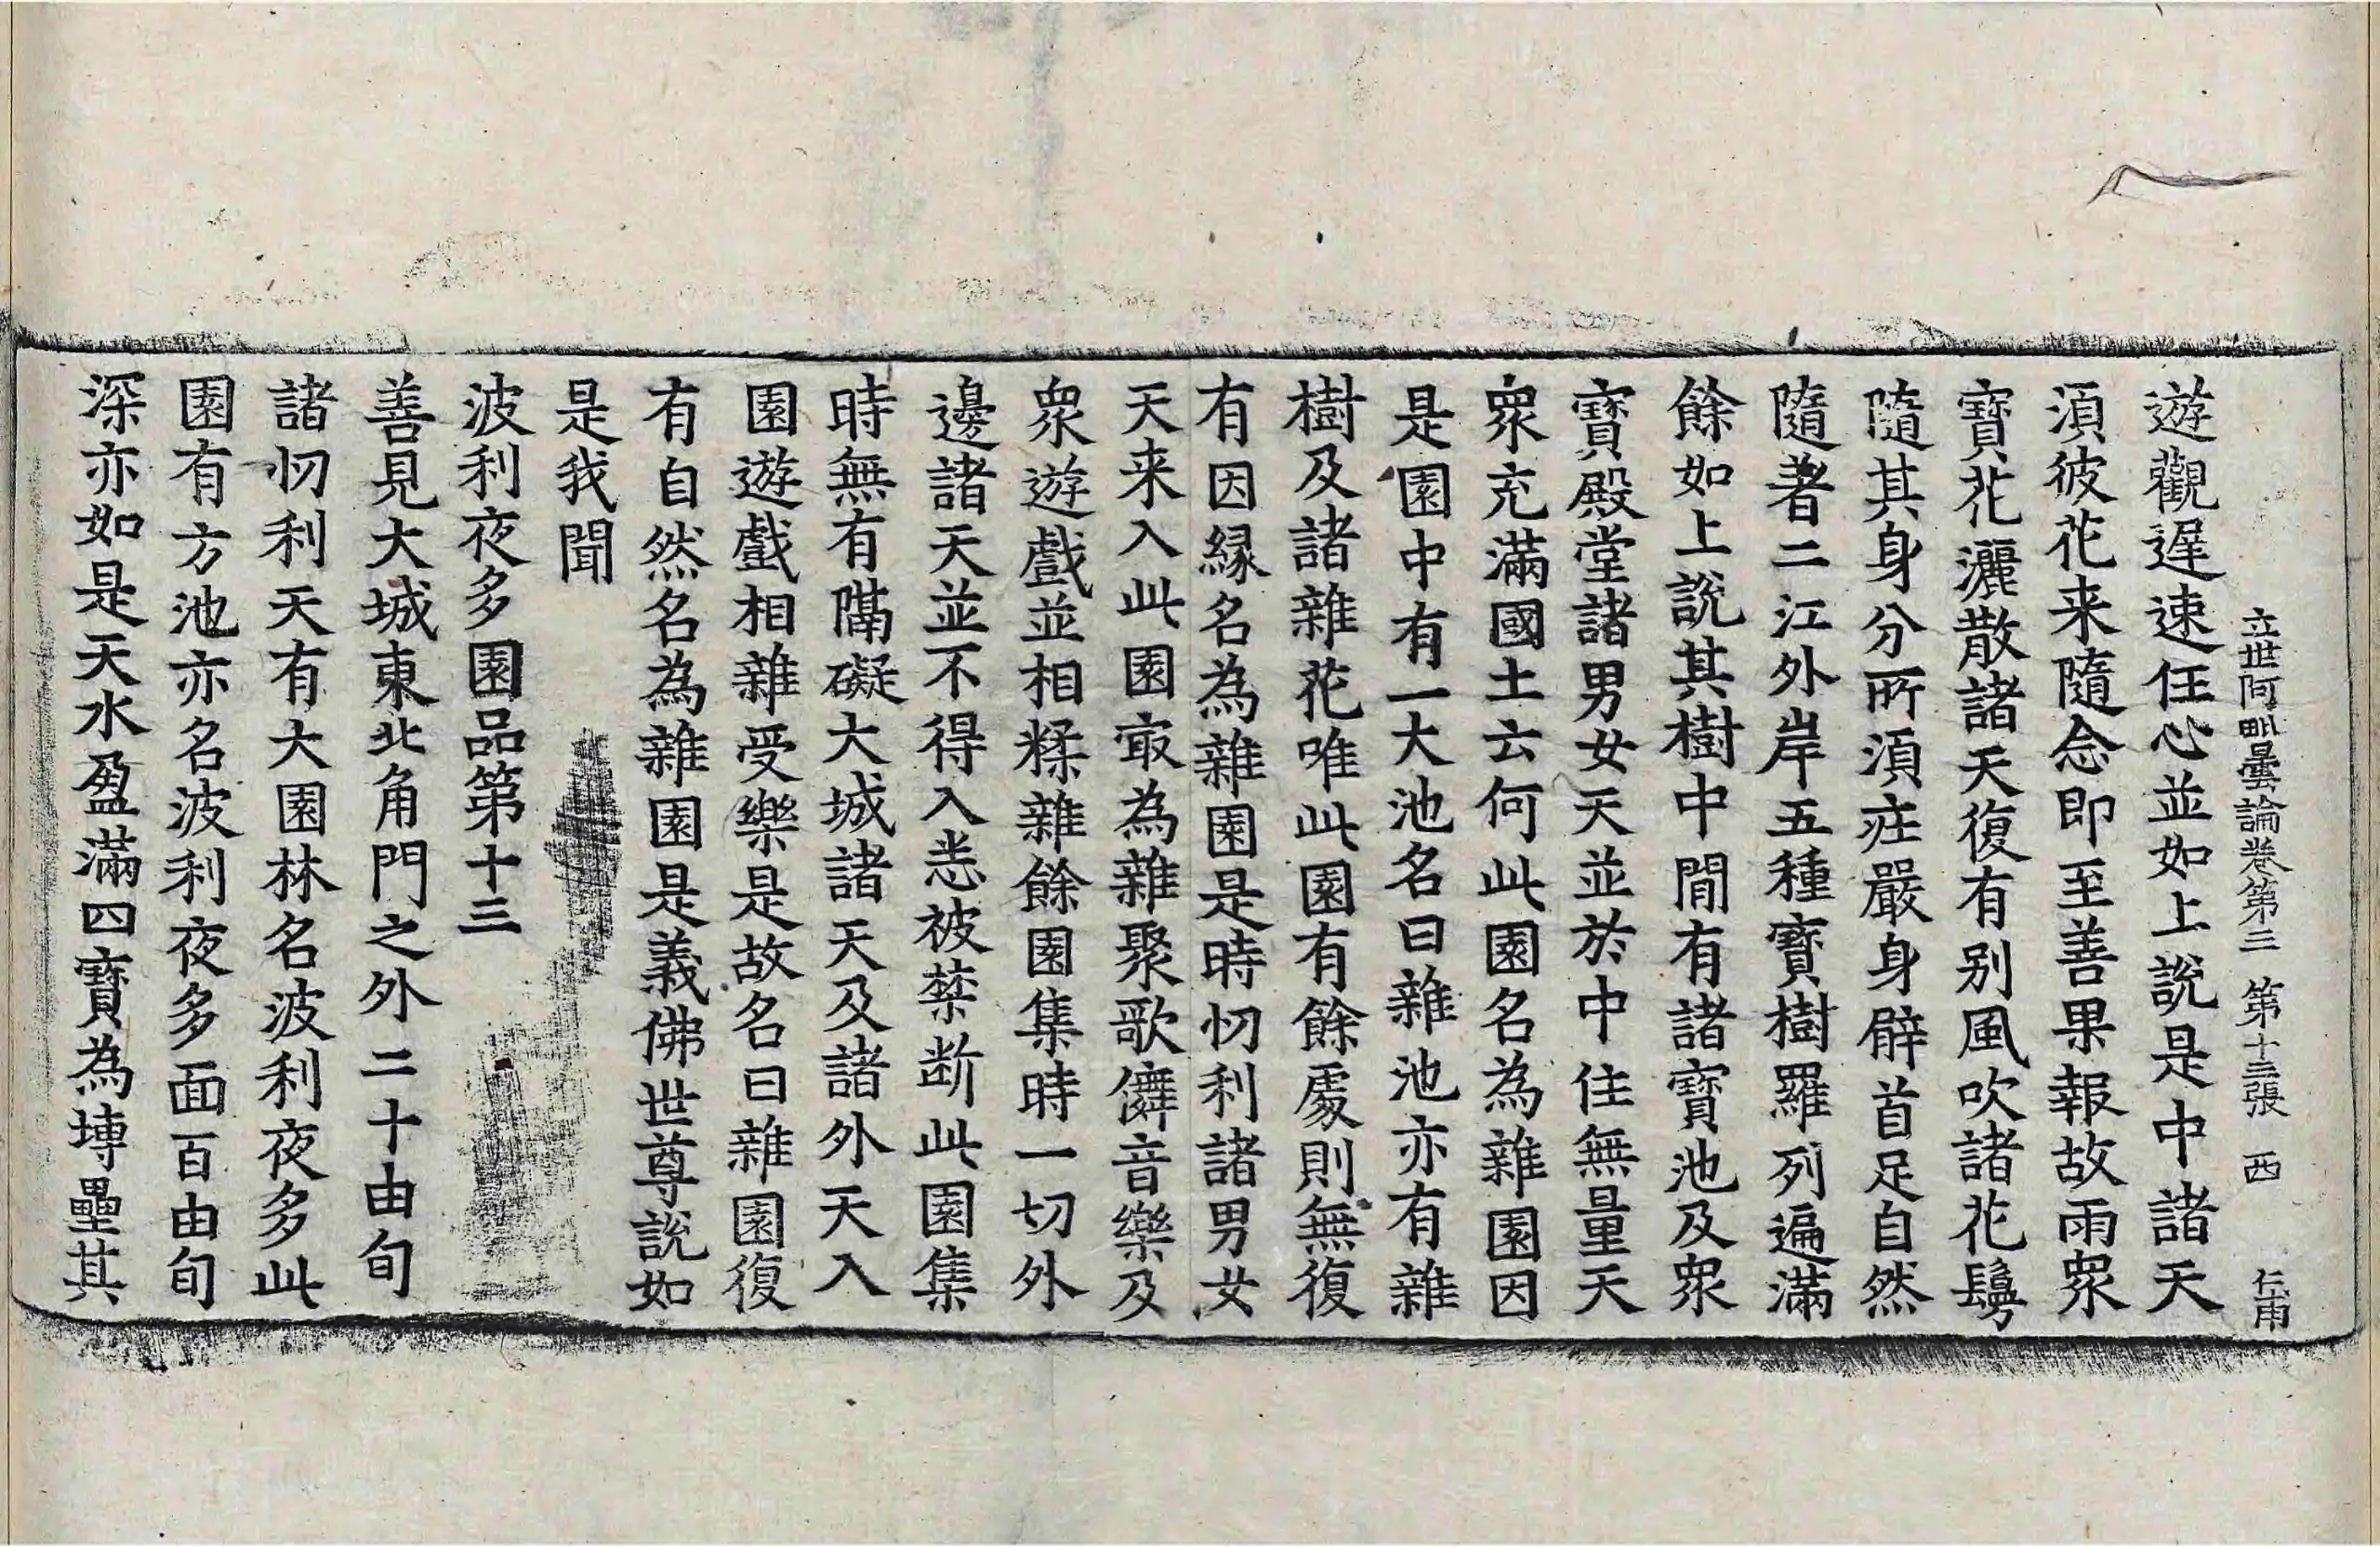 立世阿毗曇論卷第三 第十三張 西 仁甫
遊觀遲速任心並如上說是中諸天
湏彼花来隨念即至善果報故雨衆
寶花灑散諸天復有别風吹諸花鬘
隨其身分所湏疰嚴身臂首足自然
隨著二江外岸五種寶樹羅列遍滿
餘如上說其樹中間有諸寶池及衆
寶殿堂諸男女天並於中住無量天
衆充滿國土云何此園名為雜園因
是園中有一大池名曰雜池亦有雜
樹及諸雜花唯此園有餘處則無復
有因縁名為雜園是時忉利諸男女
天来入此園㝡為雜聚歌儛音樂及
衆遊戲並相糅雜餘園集時一切外
邊諸天並不得入悉被禁断此園集
時無有隔礙大城諸天及諸外天入
園遊戲相雜受樂是故名曰雜園復
有自然名為雜園是義佛世尊說如
是我聞
波利夜多園品第十三
善見大城東北角門之外二十由旬
諸忉利天有大園林名波利夜多此
園有方池亦名波利夜多面百由旬
深亦如是天水盈滿四寶為塼壘其